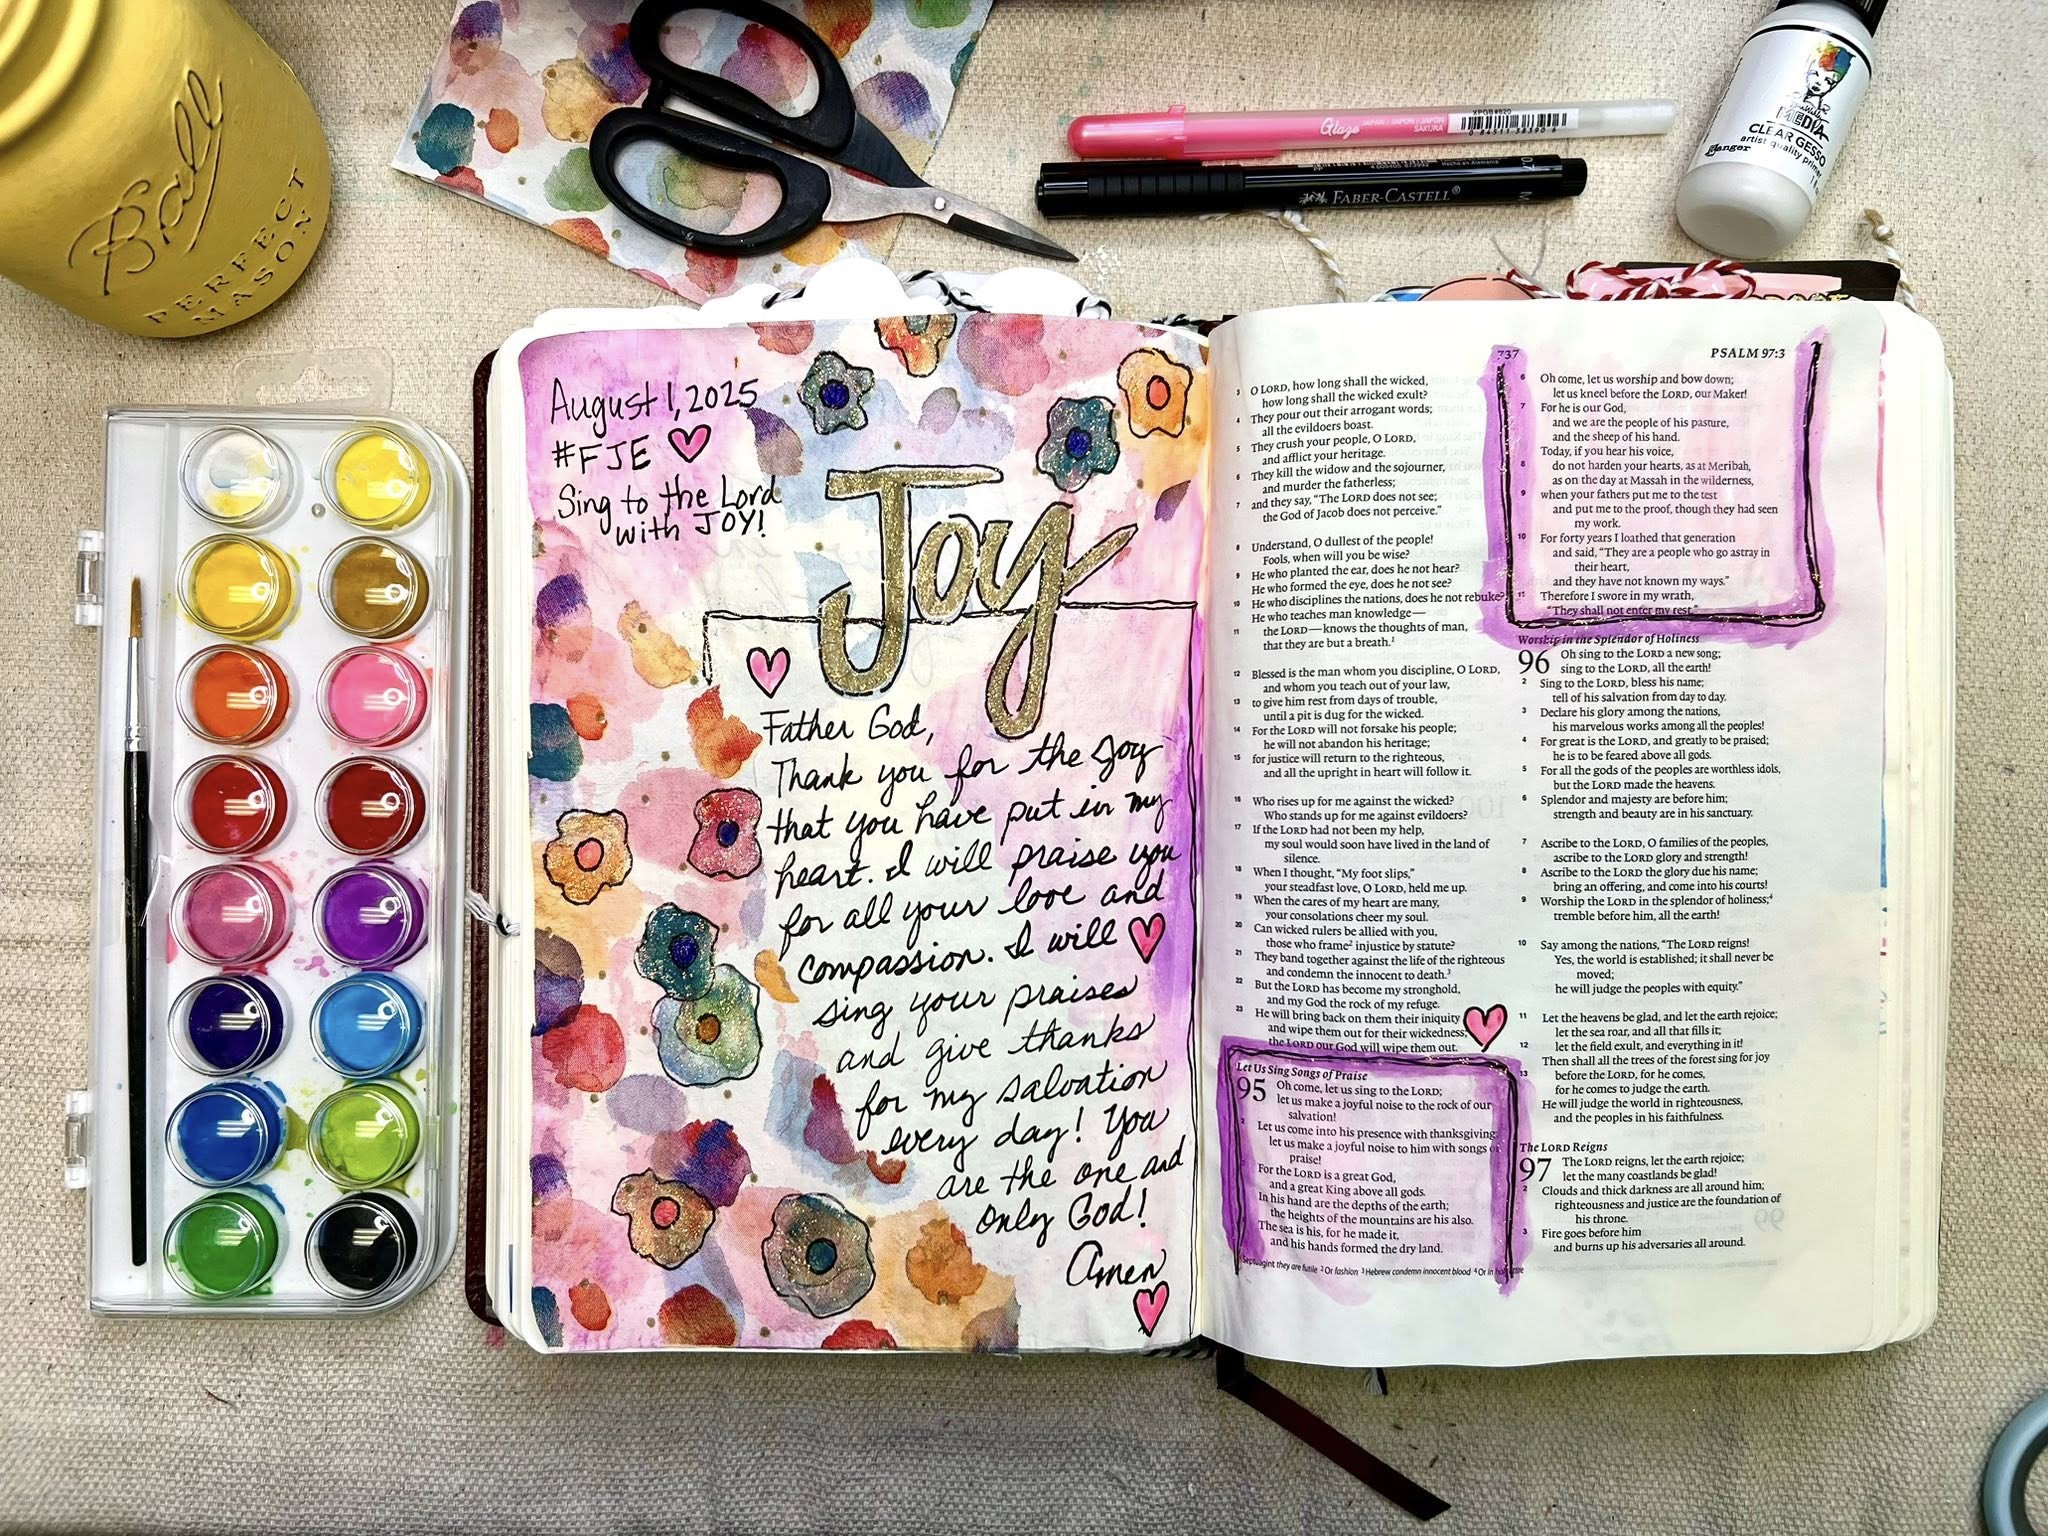 Ball
PERFECT
MASON
Glaze
JAPAN / JAPÓN / JAPON
SAKURA
XPGB #820
0 84511 38390 6
FABER-CASTELL®
Hecho en Alemania
0.7
M
MEDIA
CLEAR GESSO
artist quality primer
Ranger
August 1, 2025
#FJE
Sing to the Lord
with JOY!
Joy
Father God,
Thank you for the Joy
that you have put in my
heart. I will praise you
for all your love and
compassion. I will
sing your praises
and give thanks
for my salvation
every day! You
are the one and
only God!
Amen
737
PSALM 97:3
3 O LORD, how long shall the wicked,
how long shall the wicked exult?
4 They pour out their arrogant words;
all the evildoers boast.
5 They crush your people, O LORD,
and afflict your heritage.
6 They kill the widow and the sojourner,
and murder the fatherless;
7 and they say, "The LORD does not see;
the God of Jacob does not perceive."
8 Understand, O dullest of the people!
Fools, when will you be wise?
9 He who planted the ear, does he not hear?
He who formed the eye, does he not see?
10 He who disciplines the nations, does he not rebuke?
He who teaches man knowledge—
11 the LORD—knows the thoughts of man,
that they are but a breath.1
12 Blessed is the man whom you discipline, O LORD,
and whom you teach out of your law,
13 to give him rest from days of trouble,
until a pit is dug for the wicked.
14 For the LORD will not forsake his people;
he will not abandon his heritage;
15 for justice will return to the righteous,
and all the upright in heart will follow it.
16 Who rises up for me against the wicked?
Who stands up for me against evildoers?
17 If the LORD had not been my help,
my soul would soon have lived in the land of
silence.
18 When I thought, "My foot slips,"
your steadfast love, O LORD, held me up.
19 When the cares of my heart are many,
your consolations cheer my soul.
20 Can wicked rulers be allied with you,
those who frame2 injustice by statute?
21 They band together against the life of the righteous
and condemn the innocent to death.3
22 But the LORD has become my stronghold,
and my God the rock of my refuge.
23 He will bring back on them their iniquity
and wipe them out for their wickedness;
the LORD our God will wipe them out.
Let Us Sing Songs of Praise
95 Oh come, let us sing to the LORD;
let us make a joyful noise to the rock of our
salvation!
2 Let us come into his presence with thanksgiving;
let us make a joyful noise to him with songs of
praise!
For the LORD is a great God,
and a great King above all gods.
In his hand are the depths of the earth;
the heights of the mountains are his also.
The sea is his, for he made it,
and his hands formed the dry land.
Septuagint they are futile 2 Or fashion 3 Hebrew condemn innocent blood 4 Or in holy attire
6 Oh come, let us worship and bow down;
let us kneel before the LORD, our Maker!
7 For he is our God,
and we are the people of his pasture,
and the sheep of his hand.
Today, if you hear his voice,
8 do not harden your hearts, as at Meribah,
as on the day at Massah in the wilderness,
9 when your fathers put me to the test
and put me to the proof, though they had seen
my work.
10 For forty years I loathed that generation
and said, "They are a people who go astray in
their heart,
and they have not known my ways."
11 Therefore I swore in my wrath,
"They shall not enter my rest."
Worship in the Splendor of Holiness
96 Oh sing to the LORD a new song;
sing to the LORD, all the earth!
2 Sing to the LORD, bless his name;
tell of his salvation from day to day.
3 Declare his glory among the nations,
his marvelous works among all the peoples!
4 For great is the LORD, and greatly to be praised;
he is to be feared above all gods.
5 For all the gods of the peoples are worthless idols,
but the LORD made the heavens.
6 Splendor and majesty are before him;
strength and beauty are in his sanctuary.
7 Ascribe to the LORD, O families of the peoples,
ascribe to the LORD glory and strength!
8 Ascribe to the LORD the glory due his name;
bring an offering, and come into his courts!
9 Worship the LORD in the splendor of holiness;4
tremble before him, all the earth!
10 Say among the nations, "The LORD reigns!
Yes, the world is established; it shall never be
moved;
he will judge the peoples with equity."
11 Let the heavens be glad, and let the earth rejoice;
let the sea roar, and all that fills it;
12 let the field exult, and everything in it!
Then shall all the trees of the forest sing for joy
13 before the LORD, for he comes,
for he comes to judge the earth.
He will judge the world in righteousness,
and the peoples in his faithfulness.
The LORD Reigns
97 The LORD reigns, let the earth rejoice;
let the many coastlands be glad!
2 Clouds and thick darkness are all around him;
righteousness and justice are the foundation of
his throne.
3 Fire goes before him
and burns up his adversaries all around.